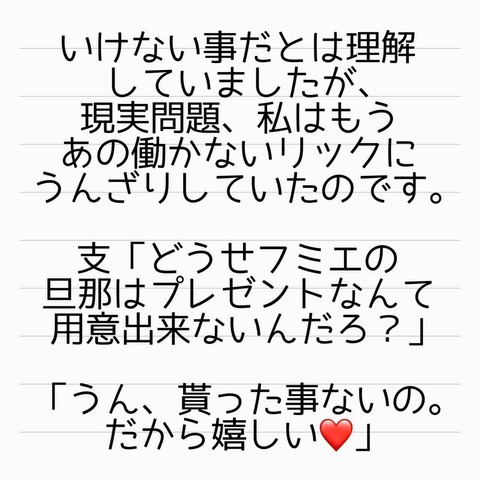 いけない事だとは理解
していましたが、
現実問題、私はもう
あの働かないリックに
うんざりしていたのです。
支「どうせフミエの
旦那はプレゼントなんて
用意出来ないんだろ？」
「うん、貰った事ないの。
だから嬉しい❤️」